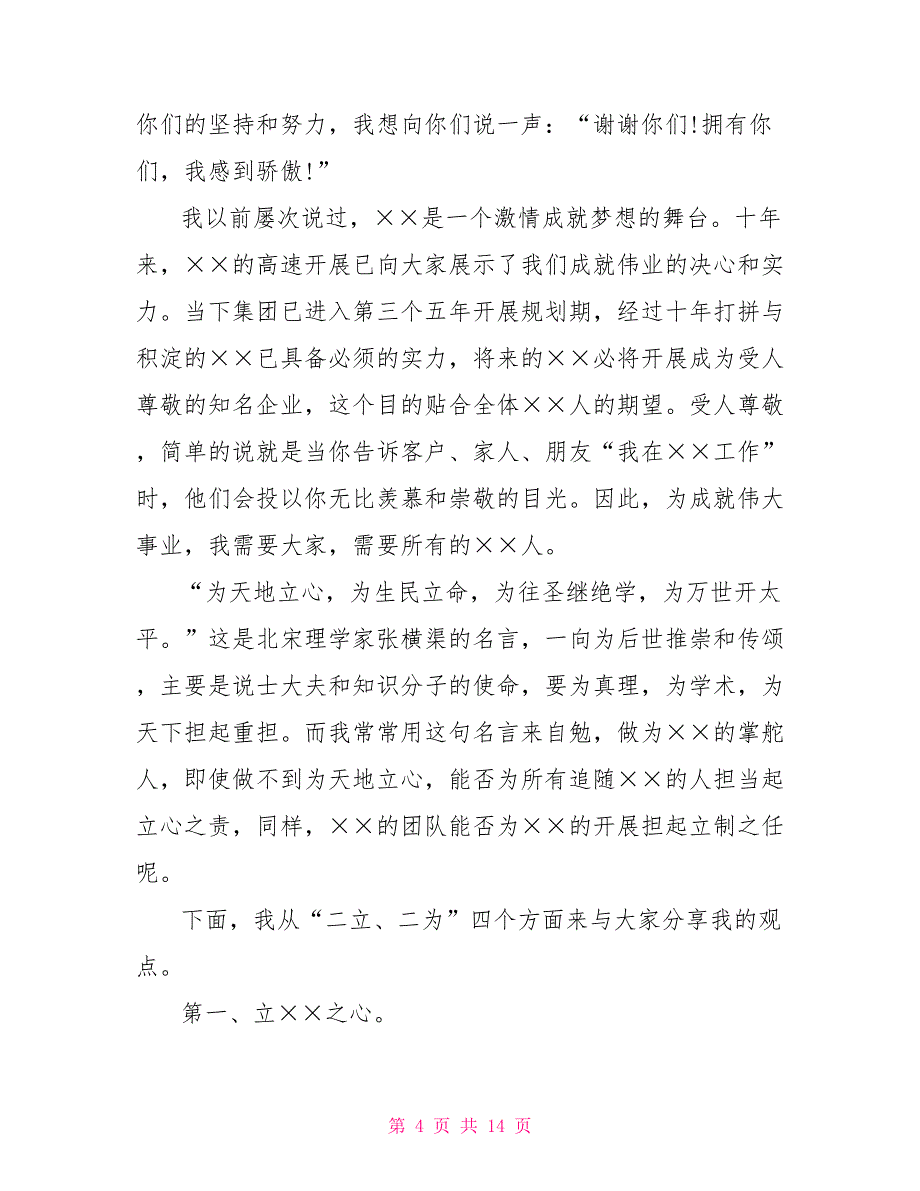 你们的坚持和努力，我想向你们说一声：“谢谢你们!拥有你
们，我感到骄傲!”
我以前屡次说过，××是一个激情成就梦想的舞台。十年
来，××的高速开展已向大家展示了我们成就伟业的决心和实
力。当下集团已进入第三个五年开展规划期，经过十年打拼与
积淀的××已具备必须的实力，将来的××必将开展成为受人
尊敬的知名企业，这个目的贴合全体××人的期望。受人尊敬
，简单的说就是当你告诉客户、家人、朋友“我在××工作”
时，他们会投以你无比羡慕和崇敬的目光。因此，为成就伟大
事业，我需要大家，需要所有的××人。
“为天地立心，为生民立命，为往圣继绝学，为万世开太
平。”这是北宋理学家张横渠的名言，一向为后世推崇和传颂
，主要是说士大夫和知识分子的使命，要为真理，为学术，为
天下担起重担。而我常常用这句名言来自勉，做为××的掌舵
人，即使做不到为天地立心，能否为所有追随××的人担当起
立心之责，同样，××的团队能否为××的开展担起立制之任
呢。
下面，我从“二立、二为”四个方面来与大家分享我的观
点。
第一、立××之心。
第 4 页 共 14 页